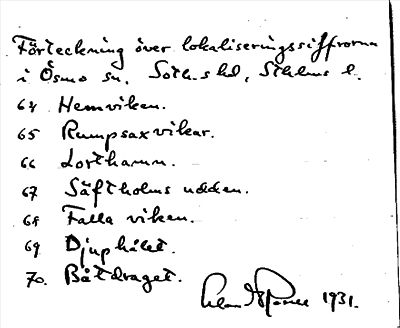 Förteckning över lokaliseringssiffrorna
i Ösmo sn. Soth. shd, Sthlms l.
64 Hemviken.
65 Rumpsaxvikar.
66 Lorthamn.
67 Säftholms udden.
68 Falla viken.
69 Djuphålet.
70. Båtdraget.
1931.